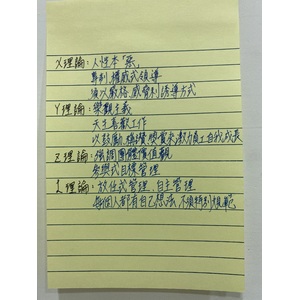 X理論：人性本「惡」
專制、權威式領導
須以嚴格、威脅利誘方式
Y理論：樂觀主義
天生喜歡工作
以鼓勵、稱讚、獎賞來激勵員工自我成長
Z理論：強調團體價值觀
參與式目標管理
L理論：放任式管理、自主管理
每個人都有自己想法，不須特別規範